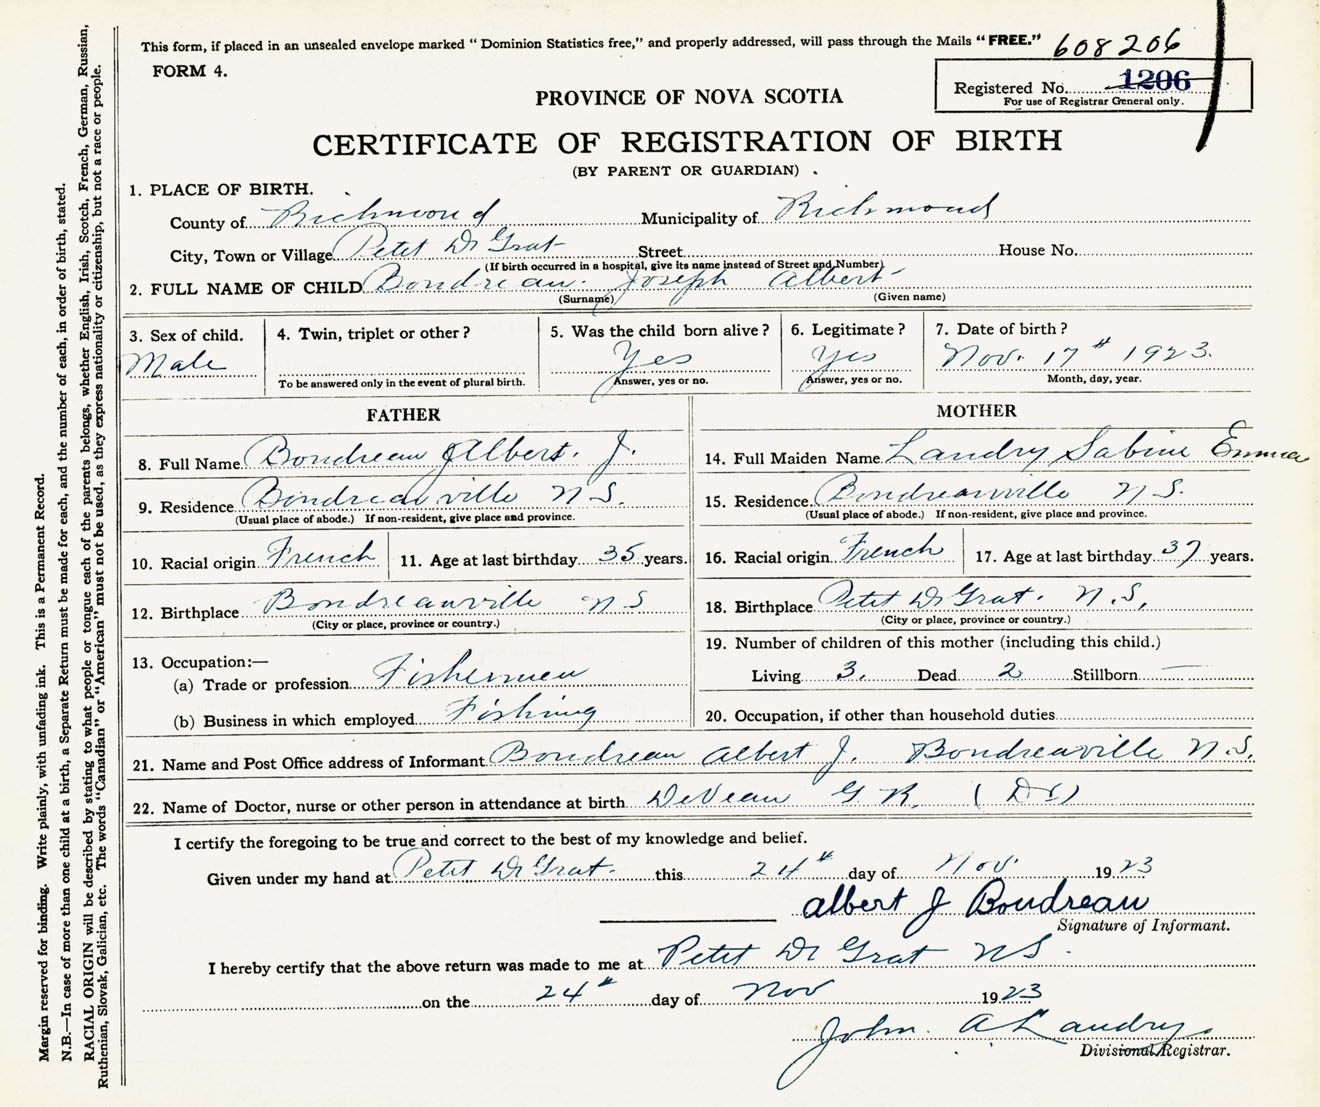 This form, if placed in an unsealed envelope marked “Dominion Statistics free,” and properly addressed, will pass through the Mails “FREE.” 608206
FORM 4.
Registered No. 1206
For use of Registrar General only.
PROVINCE OF NOVA SCOTIA
CERTIFICATE OF REGISTRATION OF BIRTH
(BY PARENT OR GUARDIAN)
1. PLACE OF BIRTH.
County of Richmond Municipality of Richmond
City, Town or Village Petit De Grat Street House No.
(If birth occurred in a hospital, give its name instead of Street and Number)
2. FULL NAME OF CHILD Boudreau. Joseph Albert
(Surname) (Given name)
3. Sex of child. 4. Twin, triplet or other? 5. Was the child born alive? 6. Legitimate? 7. Date of birth?
Male Yes Yes Nov. 17th 1923.
To be answered only in the event of plural birth. Answer, yes or no. Answer, yes or no. Month, day, year.
FATHER MOTHER
8. Full Name Boudreau Albert. J. 14. Full Maiden Name Landry Sabine Emma
9. Residence Boudreauville N S. 15. Residence Boudreauville N S.
(Usual place of abode.) If non-resident, give place and province. (Usual place of abode.) If non-resident, give place and province.
10. Racial origin French 11. Age at last birthday 35 years. 16. Racial origin French 17. Age at last birthday 37 years.
12. Birthplace Boudreauville N S 18. Birthplace Petit De Grat. N.S.
(City or place, province or country.) (City or place, province or country.)
19. Number of children of this mother (including this child.)
13. Occupation:—
(a) Trade or profession Fishermen Living 3. Dead 2 Stillborn —
(b) Business in which employed Fishing 20. Occupation, if other than household duties
21. Name and Post Office address of Informant Boudreau Albert J. Boudreauville N.S.
22. Name of Doctor, nurse or other person in attendance at birth DeVeau G R. (Dr)
I certify the foregoing to be true and correct to the best of my knowledge and belief.
Given under my hand at Petit De Grat. this 24th day of Nov. 1923
albert J Boudreau
Signature of Informant.
I hereby certify that the above return was made to me at Petit De Grat N S.
on the 24th day of Nov 1923
John. A Landry.
Divisional Registrar.
Margin reserved for binding. Write plainly, with unfading ink. This is a Permanent Record.
N.B.—In case of more than one child at a birth, a Separate Return must be made for each, and the number of each, in order of birth, stated.
RACIAL ORIGIN will be described by stating to what people or tongue each of the parents belongs, whether English, Irish, Scotch, French, German, Russian,
Ruthenian, Slovak, Galician, etc. The words “Canadian” or “American” must not be used, as they express nationality or citizenship, but not a race or people.